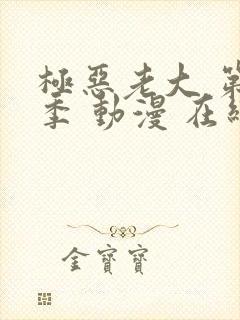 極惡老大 第
季 動漫 在
金寶寶